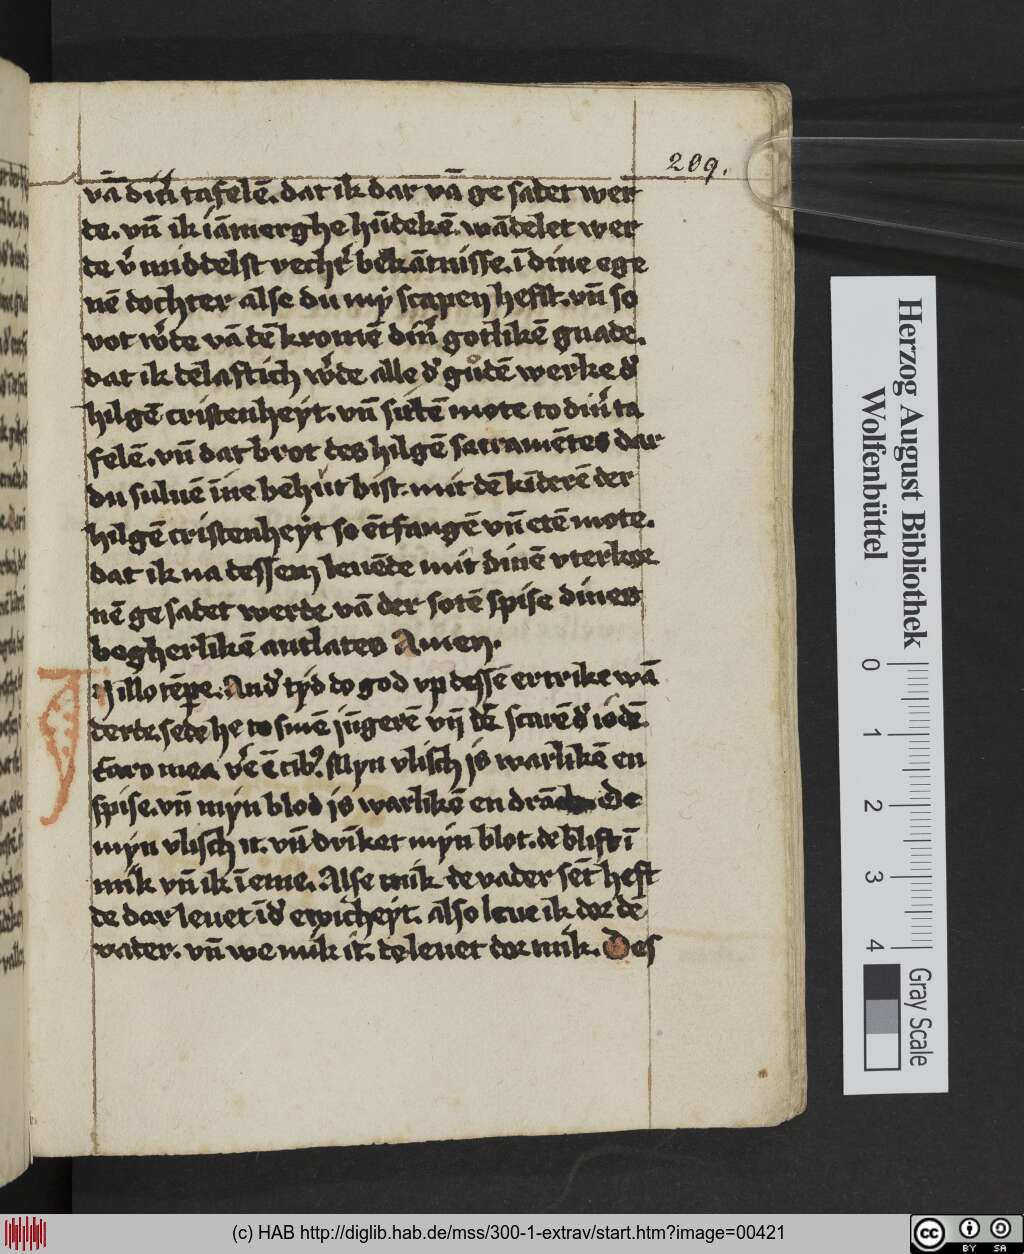 209.
vā din̄ tafelē. dat ik dar vā ge sadet wer
de. vn̄ ik iāmerghe hūdekē. wādelet wer
de v̓middelst rechť bekātnisse. ī dine ege
nē dochter alse du my scapen hefst. vn̄ so
vot w̓de vā dē kromē din̓ gotlikē gnade.
dat ik delaftich w̓de alle d̓ gůdē werke d̓
hilgē cristenheyt. vn̄ sutē mote to din̓ ta
felē. vn̄ dat brot des hilgē sacramētes dar
du suluē ine behut bist. mit dē kīderē der
hilgē cristenheyt so ētfangē vn̄ etē mote.
dat ik na dessem leuēde mit dinē vterkor
nē ge sadet werde vā der sotē spise dines
begherlikē antlates Amen.
In illo tēpe. An d̓ tyd do god vp dessē ertrike wā
derte. sede he to sinē jūgerē vn̄ dē scarē d̓ iodē
Caro mea v̓e ē cib⁹. Myn vlisch is warlikē en
spise. vn̄ myn blod is warlikē en drāck. De
myn vlisch it. vn̄ drīket myn blot. de blift ī
mik vn̄ ik ī eme. Alse mik de vader sēt heft
de dar leuet ī d̓ ewicheyt. also leue ik dor dē
vader. vn̄ we mik it. de leuet dor mik. Des
Herzog August Bibliothek
Wolfenbüttel
0 1 2 3 4
Gray Scale
(c) HAB http://diglib.hab.de/mss/300-1-extrav/start.htm?image=00421
cc BY SA